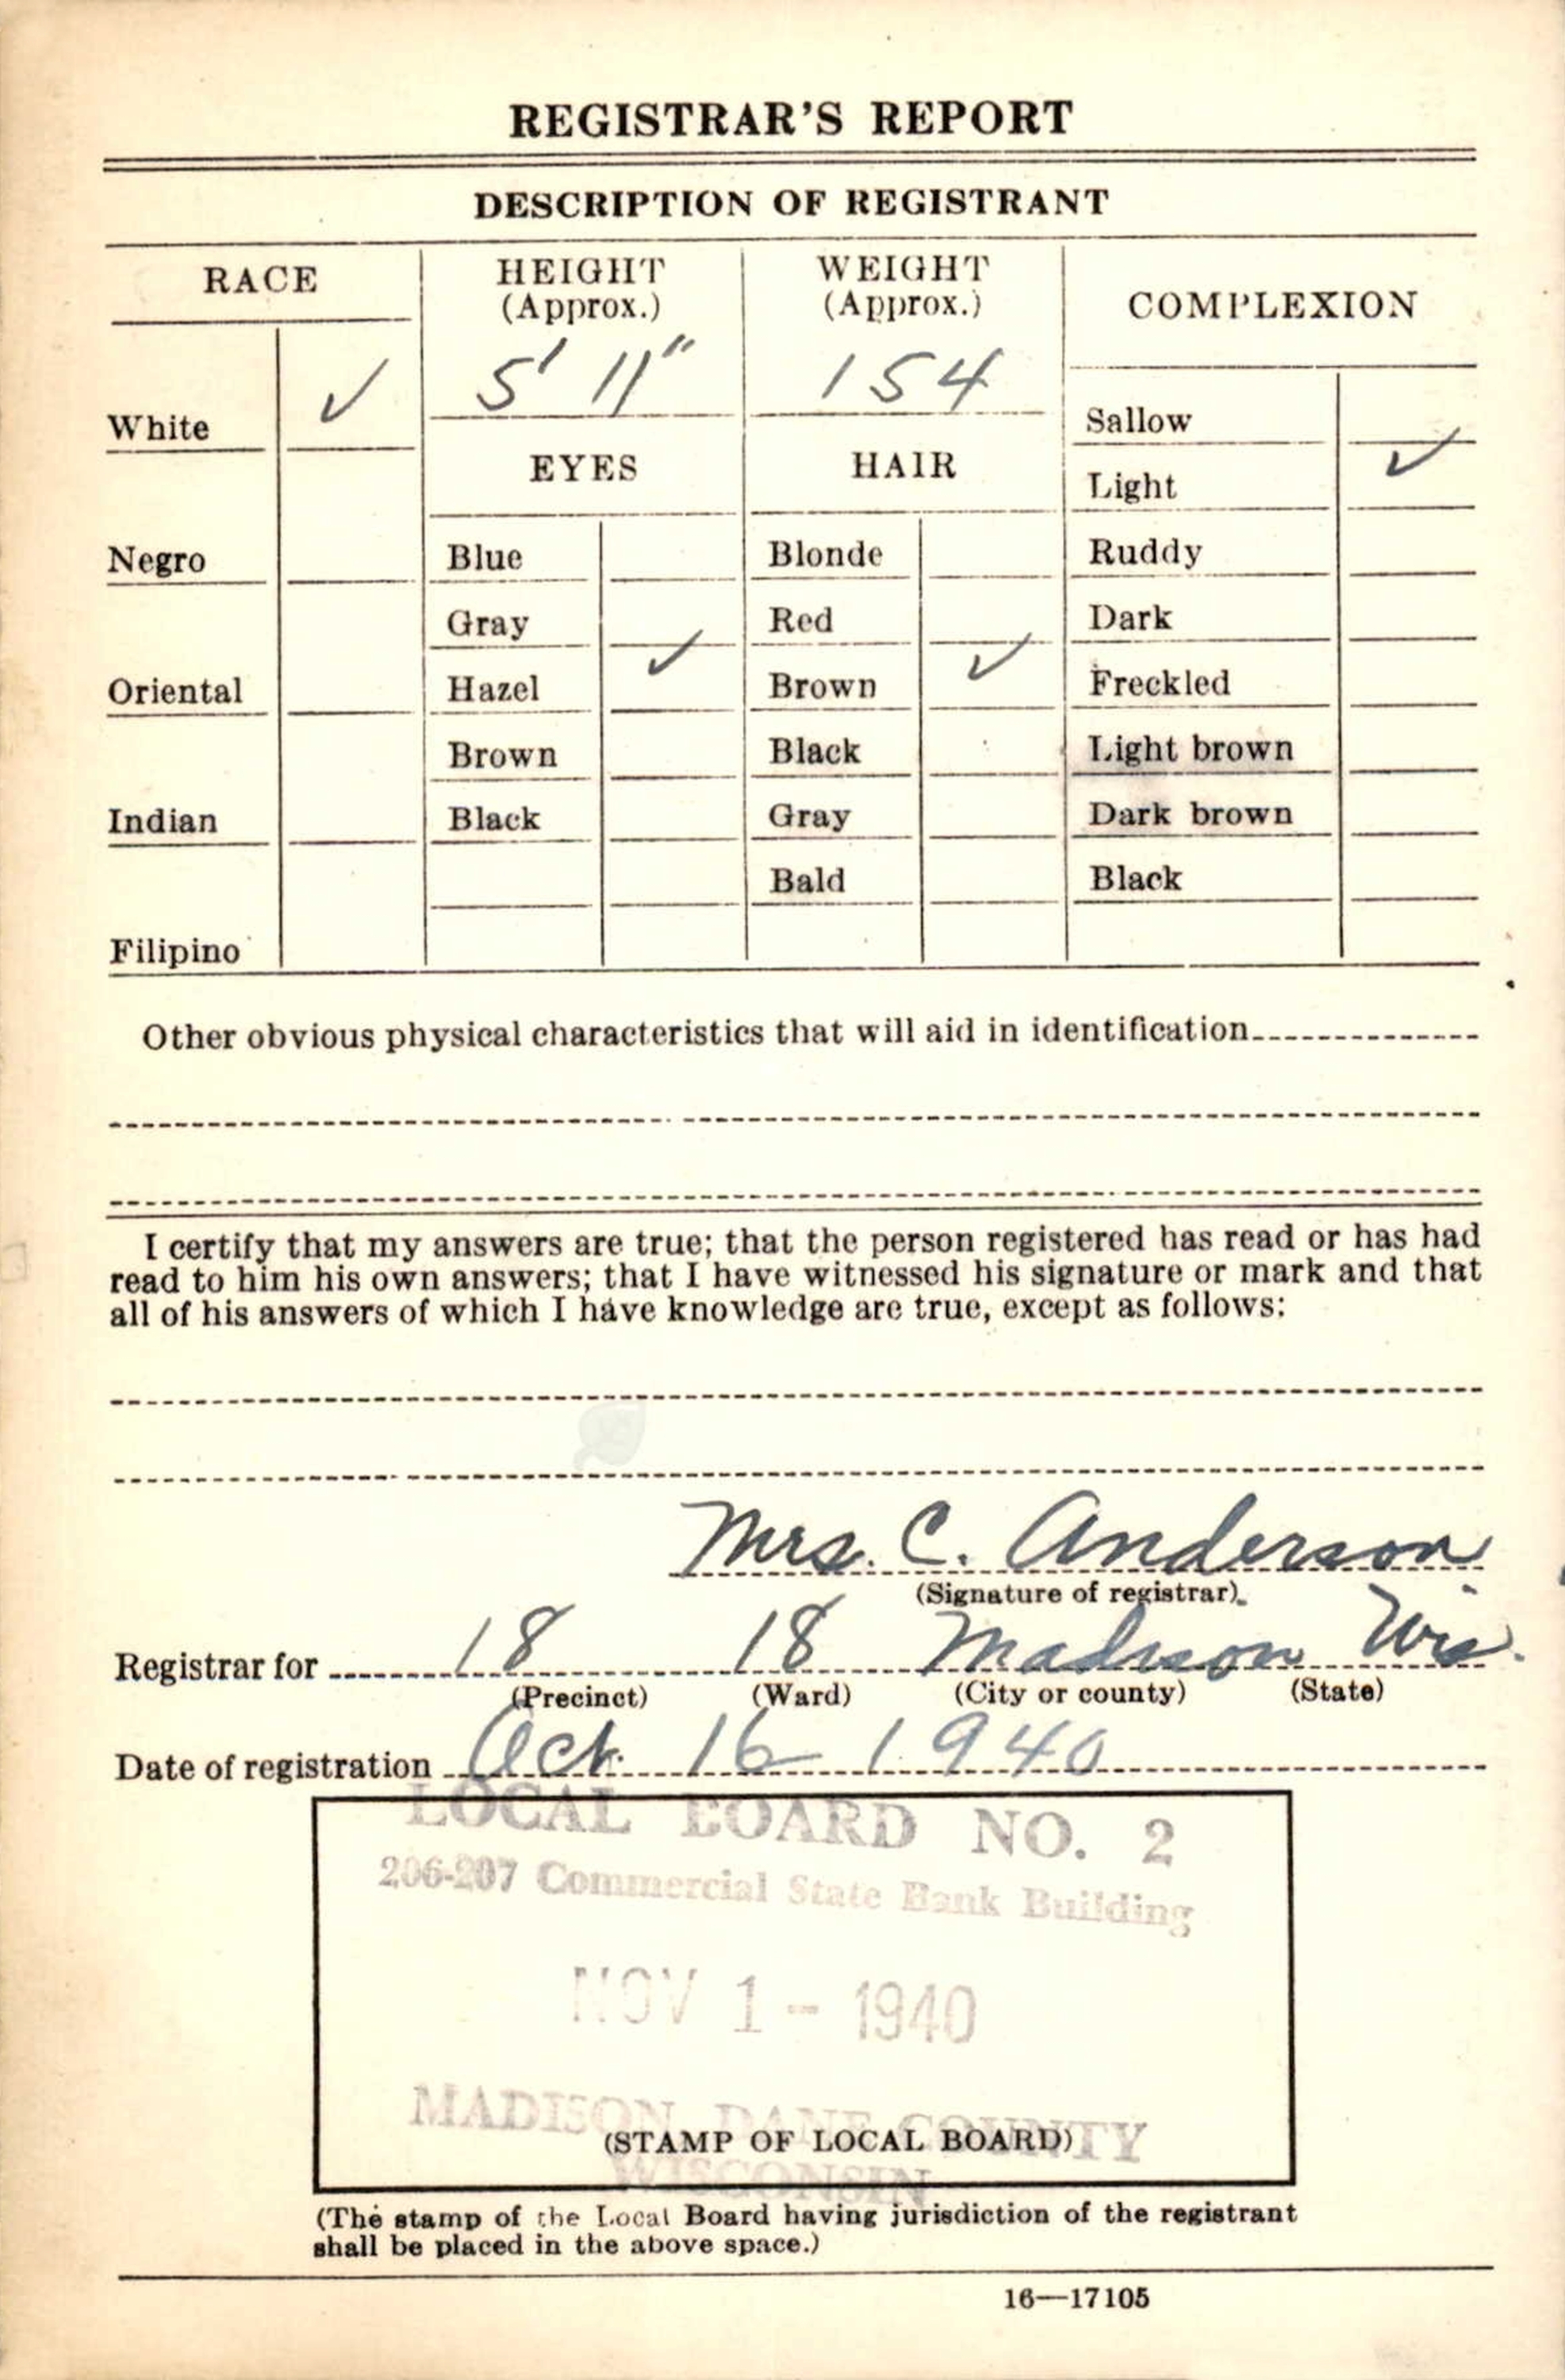 REGISTRAR'S REPORT
DESCRIPTION OF REGISTRANT
RACE
HEIGHT
(Approx.)
WEIGHT
(Approx.)
COMPLEXION
White ✓
5' 11"
154
Sallow
EYES
HAIR
Light ✓
Negro
Blue
Blonde
Ruddy
Gray
Red
Dark
Oriental
Hazel ✓
Brown ✓
Freckled
Brown
Black
Light brown
Indian
Black
Gray
Dark brown
Bald
Black
Filipino
Other obvious physical characteristics that will aid in identification
I certify that my answers are true; that the person registered has read or has had
read to him his own answers; that I have witnessed his signature or mark and that
all of his answers of which I have knowledge are true, except as follows:
Mrs. C. Anderson
(Signature of registrar)
Registrar for 18 18 Madison Wis.
(Precinct) (Ward) (City or county) (State)
Date of registration Oct. 16 1940
LOCAL BOARD NO. 2
206-207 Commercial State Bank Building
NOV 1 - 1940
MADISON, DANE COUNTY
(STAMP OF LOCAL BOARD)
WISCONSIN
(The stamp of the Local Board having jurisdiction of the registrant
shall be placed in the above space.)
16—17105